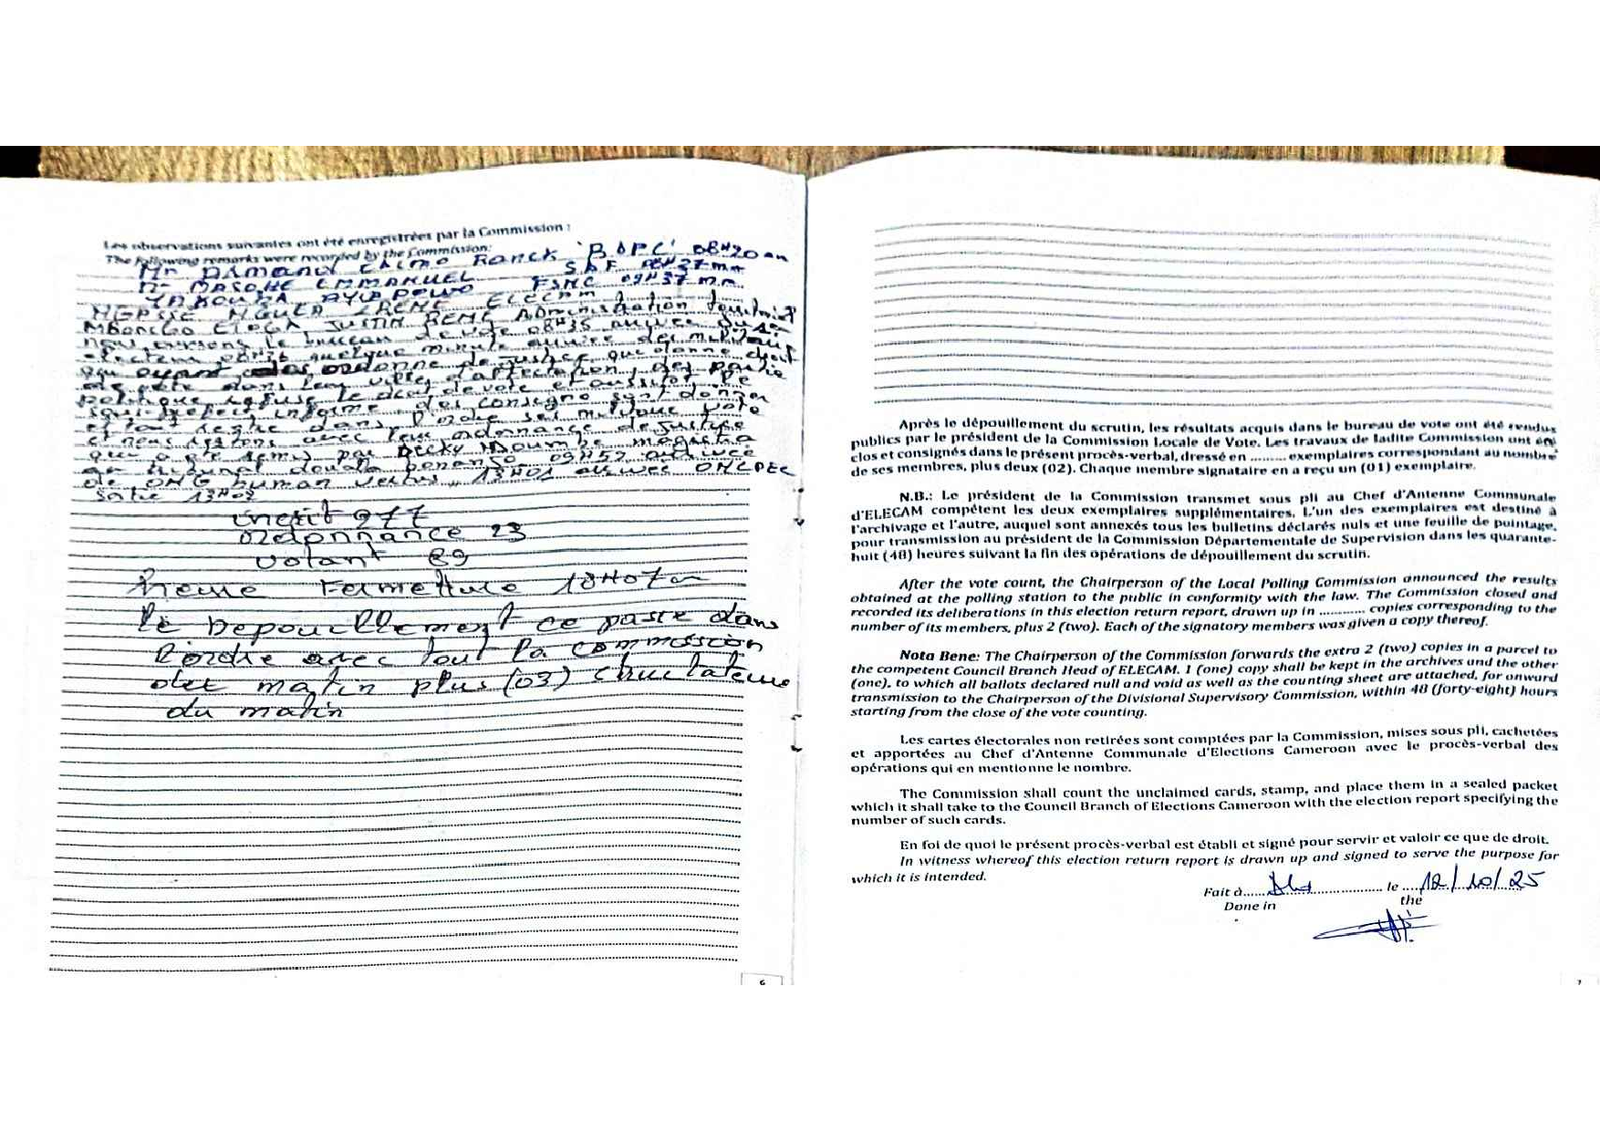 Les observations suivantes ont été enregistrées par la Commission :
The following remarks were recorded by the Commission:
Mr Ranck BDPC 08H20mn
Mr MASOHE EMMANUEL SDF 08H37mn
YAKOUBA FSNC 09H37mn
IRENE ELECAM
JUSTIN RENE Administration
nous ouvrons le bureau de vote 08H35
quelque minute
qui ayant ordonne de justice qui donne droit
de vote dans leur villes d'affectation, des partie
politique refuse le droit de vote et aussitôt le
sous-prefet informe des consigne sont donner
et tout rentre dans l'ordre vote
et nous restons avec leur ordonnance de justice
qui a été par Decky Doumbe
au tribunal douala bonanso 09H52 arrivée
de ONG human 13H01 arrivée
sortie 13H03
inscrit 977
ordonnance 23
votant 89
heure Fermetture 18H07mn
le Depouillement ce passe dans
l'ordre avec tout la commission
det matin plus (03)
du matin
6
Après le dépouillement du scrutin, les résultats acquis dans le bureau de vote ont été rendus
publics par le président de la Commission Locale de Vote. Les travaux de ladite Commission ont été
clos et consignés dans le présent procès-verbal, dressé en .......... exemplaires correspondant au nombre
de ses membres, plus deux (02). Chaque membre signataire en a reçu un (01) exemplaire.
N.B.: Le président de la Commission transmet sous pli au Chef d'Antenne Communale
d'ELECAM compétent les deux exemplaires supplémentaires. L'un des exemplaires est destiné à
l'archivage et l'autre, auquel sont annexés tous les bulletins déclarés nuls et une feuille de pointage,
pour transmission au président de la Commission Départementale de Supervision dans les quarante-
huit (48) heures suivant la fin des opérations de dépouillement du scrutin.
After the vote count, the Chairperson of the Local Polling Commission announced the results
obtained at the polling station to the public in conformity with the law. The Commission closed and
recorded its deliberations in this election return report, drawn up in ............ copies corresponding to the
number of its members, plus 2 (two). Each of the signatory members was given a copy thereof.
Nota Bene: The Chairperson of the Commission forwards the extra 2 (two) copies in a parcel to
the competent Council Branch Head of ELECAM. 1 (one) copy shall be kept in the archives and the other
(one), to which all ballots declared null and void as well as the counting sheet are attached, for onward
transmission to the Chairperson of the Divisional Supervisory Commission, within 48 (forty-eight) hours
starting from the close of the vote counting.
Les cartes électorales non retirées sont comptées par la Commission, mises sous pli, cachetées
et apportées au Chef d'Antenne Communale d'Elections Cameroon avec le procès-verbal des
opérations qui en mentionne le nombre.
The Commission shall count the unclaimed cards, stamp, and place them in a sealed packet
which it shall take to the Council Branch of Elections Cameroon with the election report specifying the
number of such cards.
En foi de quoi le présent procès-verbal est établi et signé pour servir et valoir ce que de droit.
In witness whereof this election return report is drawn up and signed to serve the purpose for
which it is intended.
Fait à Dla le 12/10/25
Done in the
7